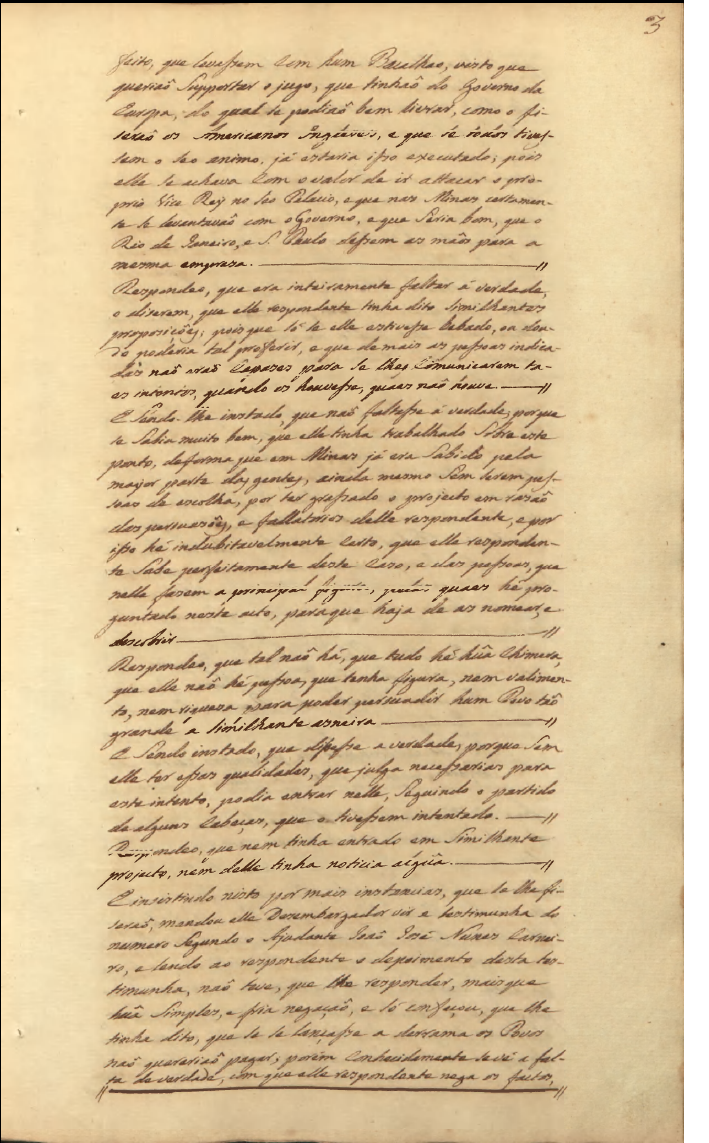 3
feito, que levassem com hum Bacalhao, visto que
queriaõ Supportar o jugo, que tinhaõ do Governo da
Europa, do qual se podiaõ bem livrar, como o fi-
zeraõ os Americanos Inglezes, e que se todos tives-
sem o seo animo, já estaria isso executado; pois
elle se achava com o valor de ir attacar o pro-
prio Vice Rey no seo Palacio, e que nas Minas certamen-
te se levantavaõ com o Governo, e que Seria bom, que o
Rio de Janeiro, e S. Paulo dessem as maõs para a
mesma empreza. //
Respondeo, que era inteiramente faltar á verdade,
o dizerem, que elle respondente tinha dito Similhantes
proposiçoẽs; pois que só se elle estivesse bebado, ou dou-
do poderia tal proferir, e que de mais as pessoas indica-
das naõ eraõ Capazes para se lhes Communicarem ta-
es intentos, quando os houvesse, quaes naõ houve. //
E Sendo-lhe instado, que naõ faltasse á verdade; porque
se Sabia muito bem, que elle tinha trabalhado Sobre este
ponto, de forma que em Minas já era Sabido pela
mayor parte das gentes, ainda mesmo Sem serem pes-
soas de escolha, por ter grassado o projecto em razaõ
das persuasoẽs, e fallatorios delle respondente, e por
isso hé indubitavelmente Certo, que elle responden-
te Sabe perfeitamente deste Cazo, e das pessoas, que
nelle fazem a principal figura, pelas quaes hé pre-
guntado neste acto, para que haja de as nomear, e
descobrir //
Respondeo, que tal naõ há, que tudo hé hũa Chimera,
que elle naõ hé pessoa, que tenha figura, nem valimen-
to, nem riqueza, para poder persuadir hum Povo taõ
grande a Similhante asneira //
E Sendo instado, que dissesse a verdade, porque Sem
elle ter essas qualidades, que julga necessarias para
este intento, podia entrar nelle, Seguindo o partido
de alguns Cabeças, que o tivessem intentado. //
Respondeo, que nem tinha entrado em Similhante
projecto, nem delle tinha noticia algũa. //
E insistindo nisto por mais instancias, que se lhe fi-
zeraõ, mandou elle Dezembargador vir a testimunha do
numero Segundo o Ajudante Joaõ José Nunes Carnei-
ro, e lendo ao respondente o depoimento desta tes-
timunha, naõ teve, que lhe responder, mais que
hũa Simples, e fria negaçaõ, e só confeçou, que lhe
tinha dito, que se se lançasse a derrama os Povos
naõ quereriaõ pagar; porém Conhecidamente se vê a fal-
ta de verdade, com que elle respondente nega os factos,